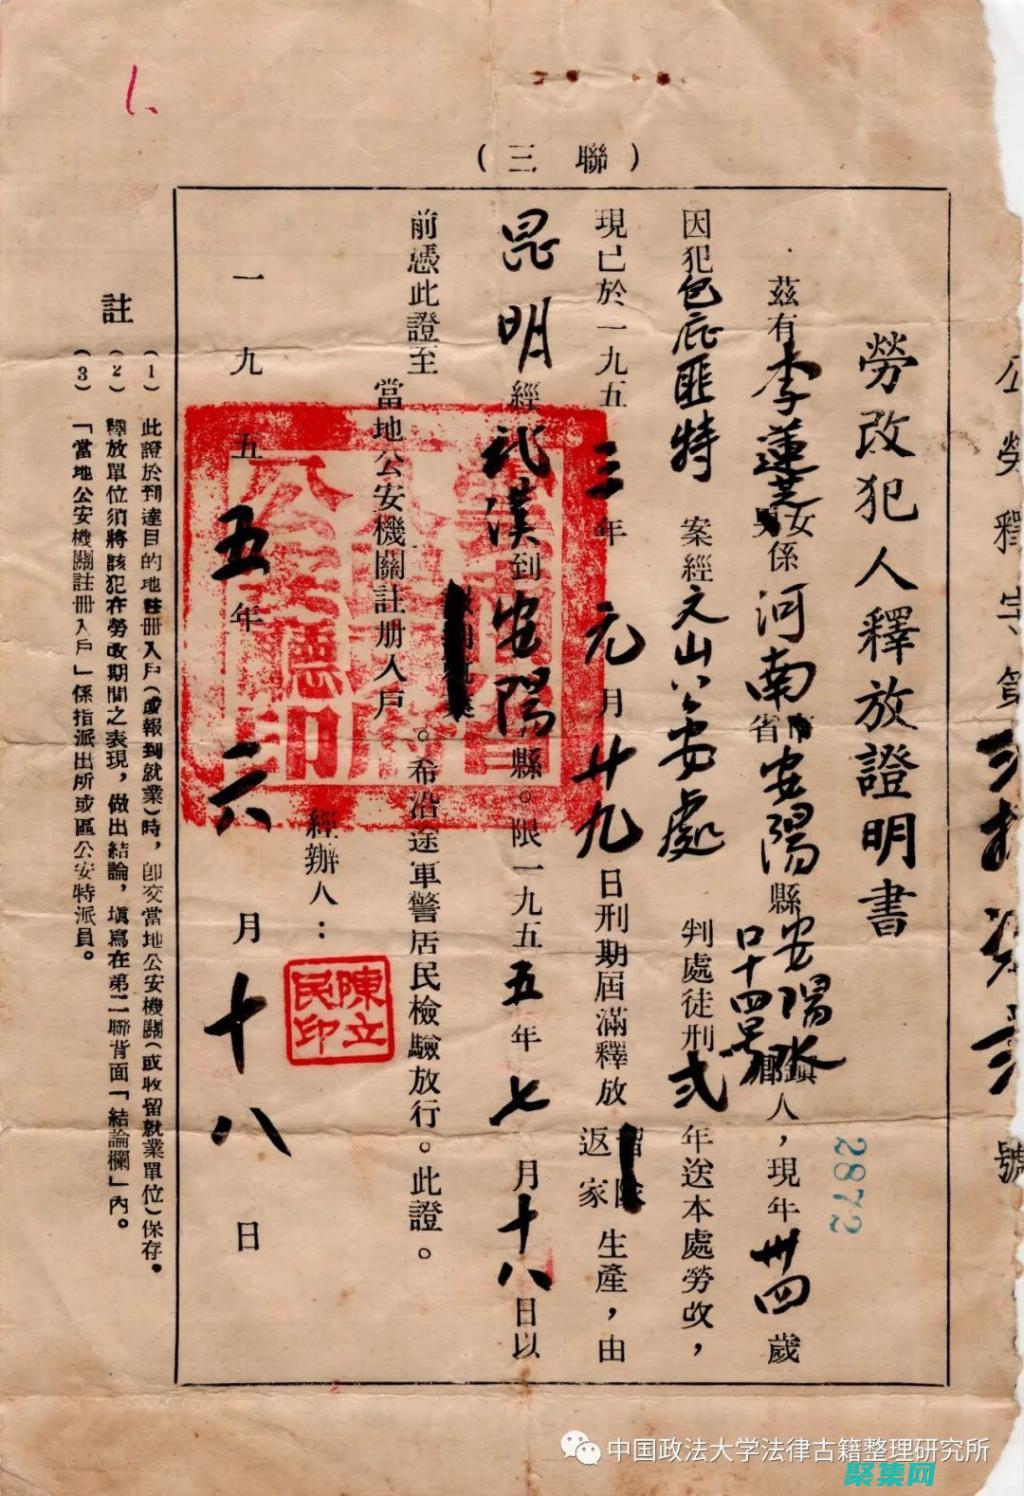 (三聯)
公勞釋字第
號
勞改犯人釋放證明書
2872
茲有李蓮芝女係河南省安陽縣安陽水鎮人，現年卅四歲
口十四号
因犯包庇匪特案經文山公安處判處徒刑弍年送本處勞改，
現已於一九五三年元月廿九日刑期屆滿釋放返家生產，由
昆明經武漢到安陽縣。限一九五五年七月十八日以
前憑此證至當地公安機關註册入戶。希沿途軍警居民檢驗放行。此證。
經辦人：
陳立民印
一九五五年六月十八日
註
(1) 此證於到達目的地註册入戶(或報到就業)時，卽交當地公安機關(或收留就業單位)保存。
(2) 釋放單位須將該犯在勞改期間之表現，做出結論，塡寫在第二聯背面「結論欄」內。
(3) 「當地公安機關註册入戶」係指派出所或區公安特派員。
1.
中国政法大学法律古籍整理研究所
聚集网